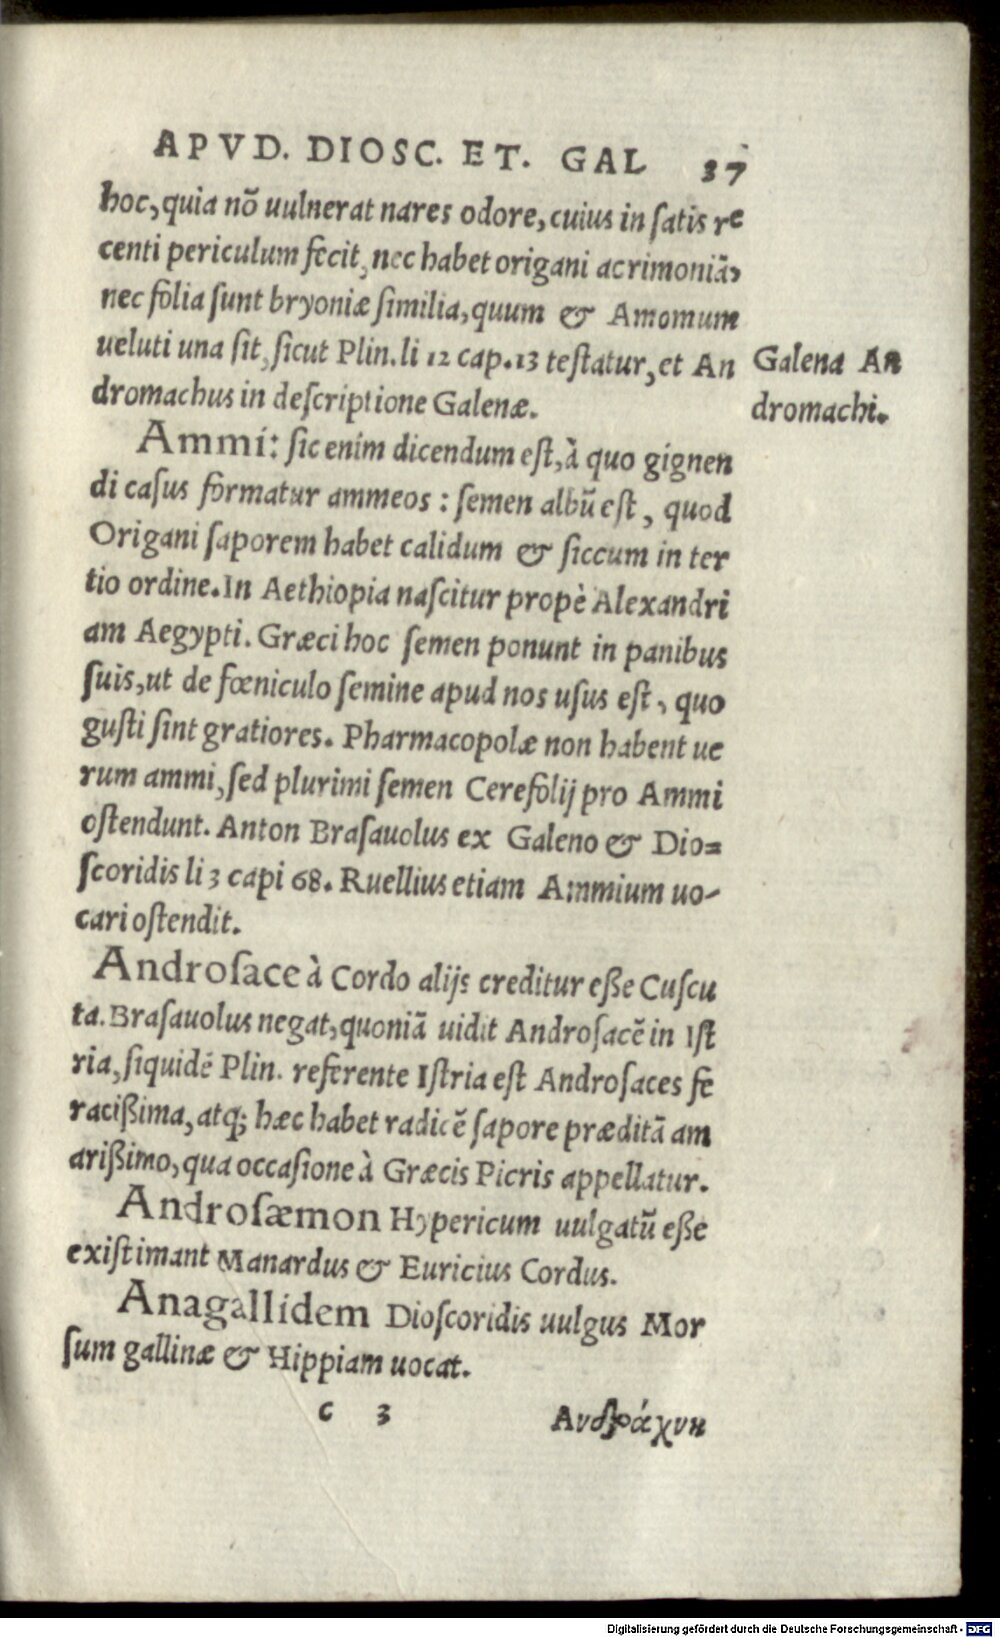 APVD. DIOSC. ET. GAL 37
hoc, quia nõ uulnerat nares odore, cuius in ſatis re
centi periculum fecit, nec habet origani acrimoniã,
nec folia ſunt bryoniæ ſimilia, quum & Amomum
ueluti una ſit, ſicut Plin. li 12 cap. 13 teſtatur, et An
dromachus in deſcriptione Galenæ.
Galena An
dromachi.
Ammi: ſic enim dicendum eſt, à quo gignen
di caſus formatur ammeos : ſemen albũ eſt, quod
Origani ſaporem habet calidum & ſiccum in ter
tio ordine. In Aethiopia naſcitur propè Alexandri
am Aegypti. Græci hoc ſemen ponunt in panibus
ſuis, ut de fœniculo ſemine apud nos uſus eſt, quo
guſti ſint gratiores. Pharmacopolæ non habent ue
rum ammi, ſed plurimi ſemen Cerefolij pro Ammi
oſtendunt. Anton Braſauolus ex Galeno & Dio=
ſcoridis li 3 capi 68. Ruellius etiam Ammium uo-
cari oſtendit.
Androſace à Cordo alijs creditur eße Cuſcu
ta. Braſauolus negat, quoniã uidit Androſacẽ in Iſt
ria, ſiquidẽ Plin. referente Iſtria eſt Androſaces fe
racißima, atq; hæc habet radicẽ ſapore præditã am
arißimo, qua occaſione à Græcis Picris appellatur.
Androſæmon Hypericum uulgatũ eße
exiſtimant Manardus & Euricius Cordus.
Anagallidem Dioſcoridis uulgus Mor
ſum gallinæ & Hippiam uocat.
C 3 Ανδράχνη
Digitalisierung gefördert durch die Deutsche Forschungsgemeinschaft - DFG